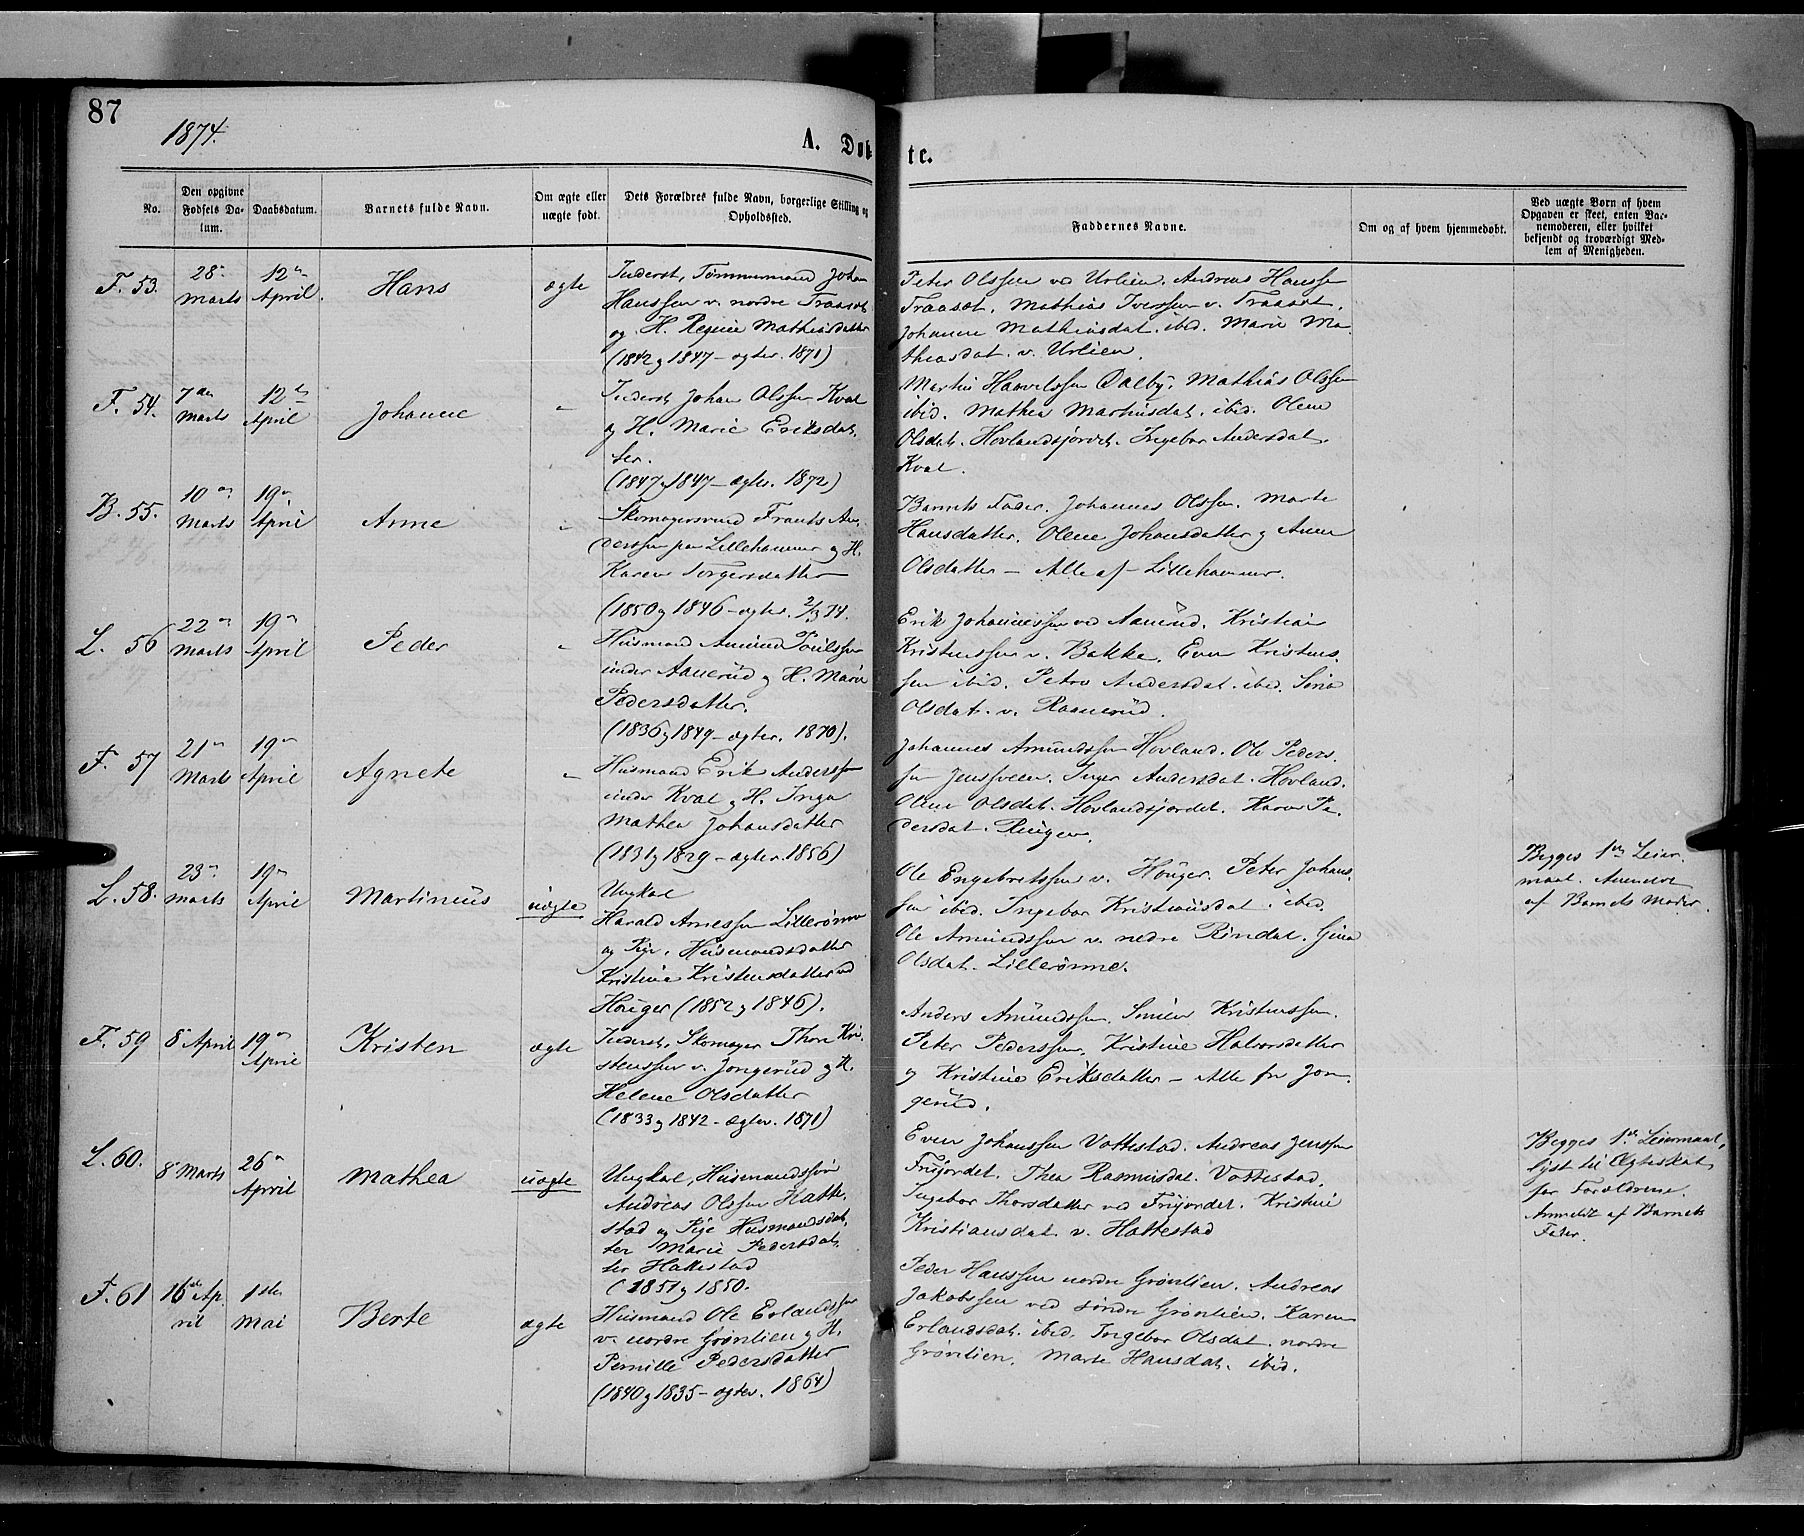 87
1874.
A. Døb
te.
No.
Den opgivne Fødsels Da-
tum.
Daabsdatum.
Barnets fulde Navn.
Om ægte eller
uægte født.
Dets Forældres fulde Navn, borgerlige Stilling og
Opholdssted.
Faddernes Navne.
Om og af hvem hjemmedøbt.
Ved uægte Born af hvem
Opgaven er skeet, enten Bar-
nemoderen, eller hvilket
bekjendt og troværdigt Med-
lem af Menigheden.
F. 53.
28de Marts
12te April.
Hans
ægte
Inderst, Tømmermand Johan
Hanssen v. nordre Traaset
og H. Regine Mathiasdatter
(1842 og 1847 - ægtev. 1871)
Peter Olssen ved Urlien. Andreas Hansse
Traaset. Mathias Iverssen v. Traaset.
Johanne Mathiasdat. ibid. Marie Ma-
thiasdat. v. Urlien.
F. 54.
7de Marts
12te April
Johanne
"
Inderst Johan Olssen Kval
og H. Marie Eriksdat-
ter.
(1847 og 1847 - ægtev. 1872)
Martin Olssen
ibid. Mathea Martinsdat. ibid. Olene
Olsdat. Hovlandsjordet. Ingebor Andersdat.
Kval.
B. 55.
10de Marts
19de April
Anne
"
Skomagersvend Frants An-
derssen paa Lillehammer og H.
Karen Torgersdatter
(1850 og 1846 - ægtev. 2/3 74.
Barnets Fader. Johannes Olssen. Marte
Hansdatter. Olene Johansdatter og Anne
Olsdatter - Alle af Lillehammer.
L. 56
22de Marts
19de April
Peder
"
Husmand Amund Poulssen
under Aanerud og H. Marie
Pedersdatter.
(1836 og 1849 - ægtev. 1870).
Erik Johannessen ved Aanerud. Kristian
Kristenssen v. Bakke. Even Kristens-
sen ibid. Petra Andersdat. ibid. Sina
Olsdat. v. Raanerud.
F. 57
21de Marts
19de April
Agnete
"
Husmand Erik Anderssen
under Kval og H. Inga
Mathea Johansdatter
(1831 og 1829 - ægtev. 1856)
Johannes Amundssen Hovland. Ole Peders-
sen Jenssveen. Inger Andersdat. Hovland.
Olene Olsdat. Hovlandsjordet. Karen Pe-
dersdat. Ringen.
L. 58.
23de Marts
19de April
Martinius
uægte
Ungkal
Harald Arnessen Lillerønne
og Pige, Husmandsdatter
Kristine Kristensdatter ved
Houger (1852 og 1846).
Ole Engebretssen v. Houger. Peter Johans-
sen ibid. Ingebor Kristiansdat. ibid.
Ole Amundssen v. nedre Rindal. Gina
Olsdat. Lillerønne.
Begges 1ste Leier-
maal. Anmeldt
af Barnets Moder.
F. 59
8de April
19de April
Kristen
ægte
Inderst, Skomager Thore Kri-
stenssen v. Jongerud og H.
Helene Olsdatter
(1833 og 1842 - ægtev. 1871)
Anders Amundssen. Simen Kristenssen.
Peter Pederssen. Kristine Halvorsdatter
og Kristine Eriksdatter - Alle fra Jon-
gerud.
L. 60.
8de Marts
26de April
Mathea
uægte
Ungkal, Husmandssøn
Andreas Olssen Hatte-
stad og Pige Husmandsdat-
ter Marie Pedersdat-
ter Hattestad
(1851 og 1850.
Even Johanssen Vottestad. Andreas Jenssen
Frijordet. Thea Rasmusdat. Vottestad.
Ingebor Thorsdatter ved Frijordet. Kristine
Kristiansdat. v. Hattestad
Begges 1ste Leiermaal,
lyst til Ægteskab
for Forældrene.
Anmeldt af Barnets
Fader.
F. 61
16de Ap-
ril
1ste Mai
Berte
ægte
Husmand Ole Erlandssen
v. nordre Grønlien og H.
Pernille Pedersdatter
(1840 og 1835 - ægtev. 1864)
Peder Hanssen nordre Grønlien. Andreas
Jakobssen ved søndre Grønlien. Karen
Erlandsdat. ibid. Ingebor Olsdat. nordre
Grønlien. Marte Hansdat. ibid.